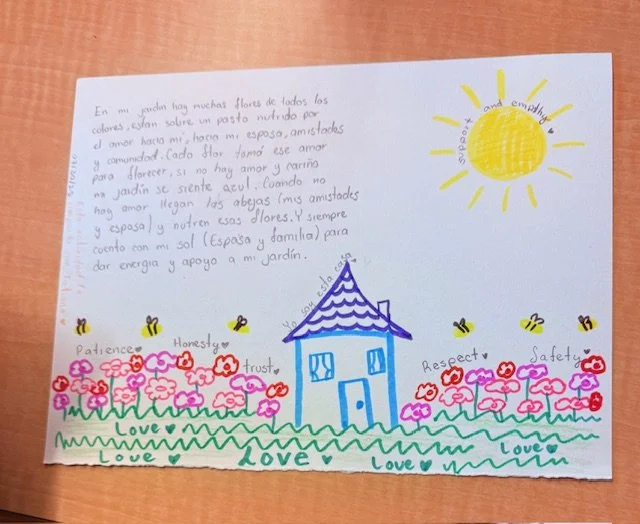 En mi jardin hay muchas flores de todos los
colores, están sobre un pasto nutrido por
el amor hacia mi, hacia mi esposa, amistades
y comunidad. Cada flor tomó ese amor
para florecer, si no hay amor y cariño
mi jardín se siente azul. Cuando no
hay amor llegan las abejas (mis amistades
y esposa) y nutren esas flores. Y siempre
cuento con mi sol (Esposa y familia) para
dar energia y apoyo a mi jardín.
support and empathy
Yo soy esta casa
Patience
Honesty
trust
Respect
Safety
Love
Love
Love
Love
Love